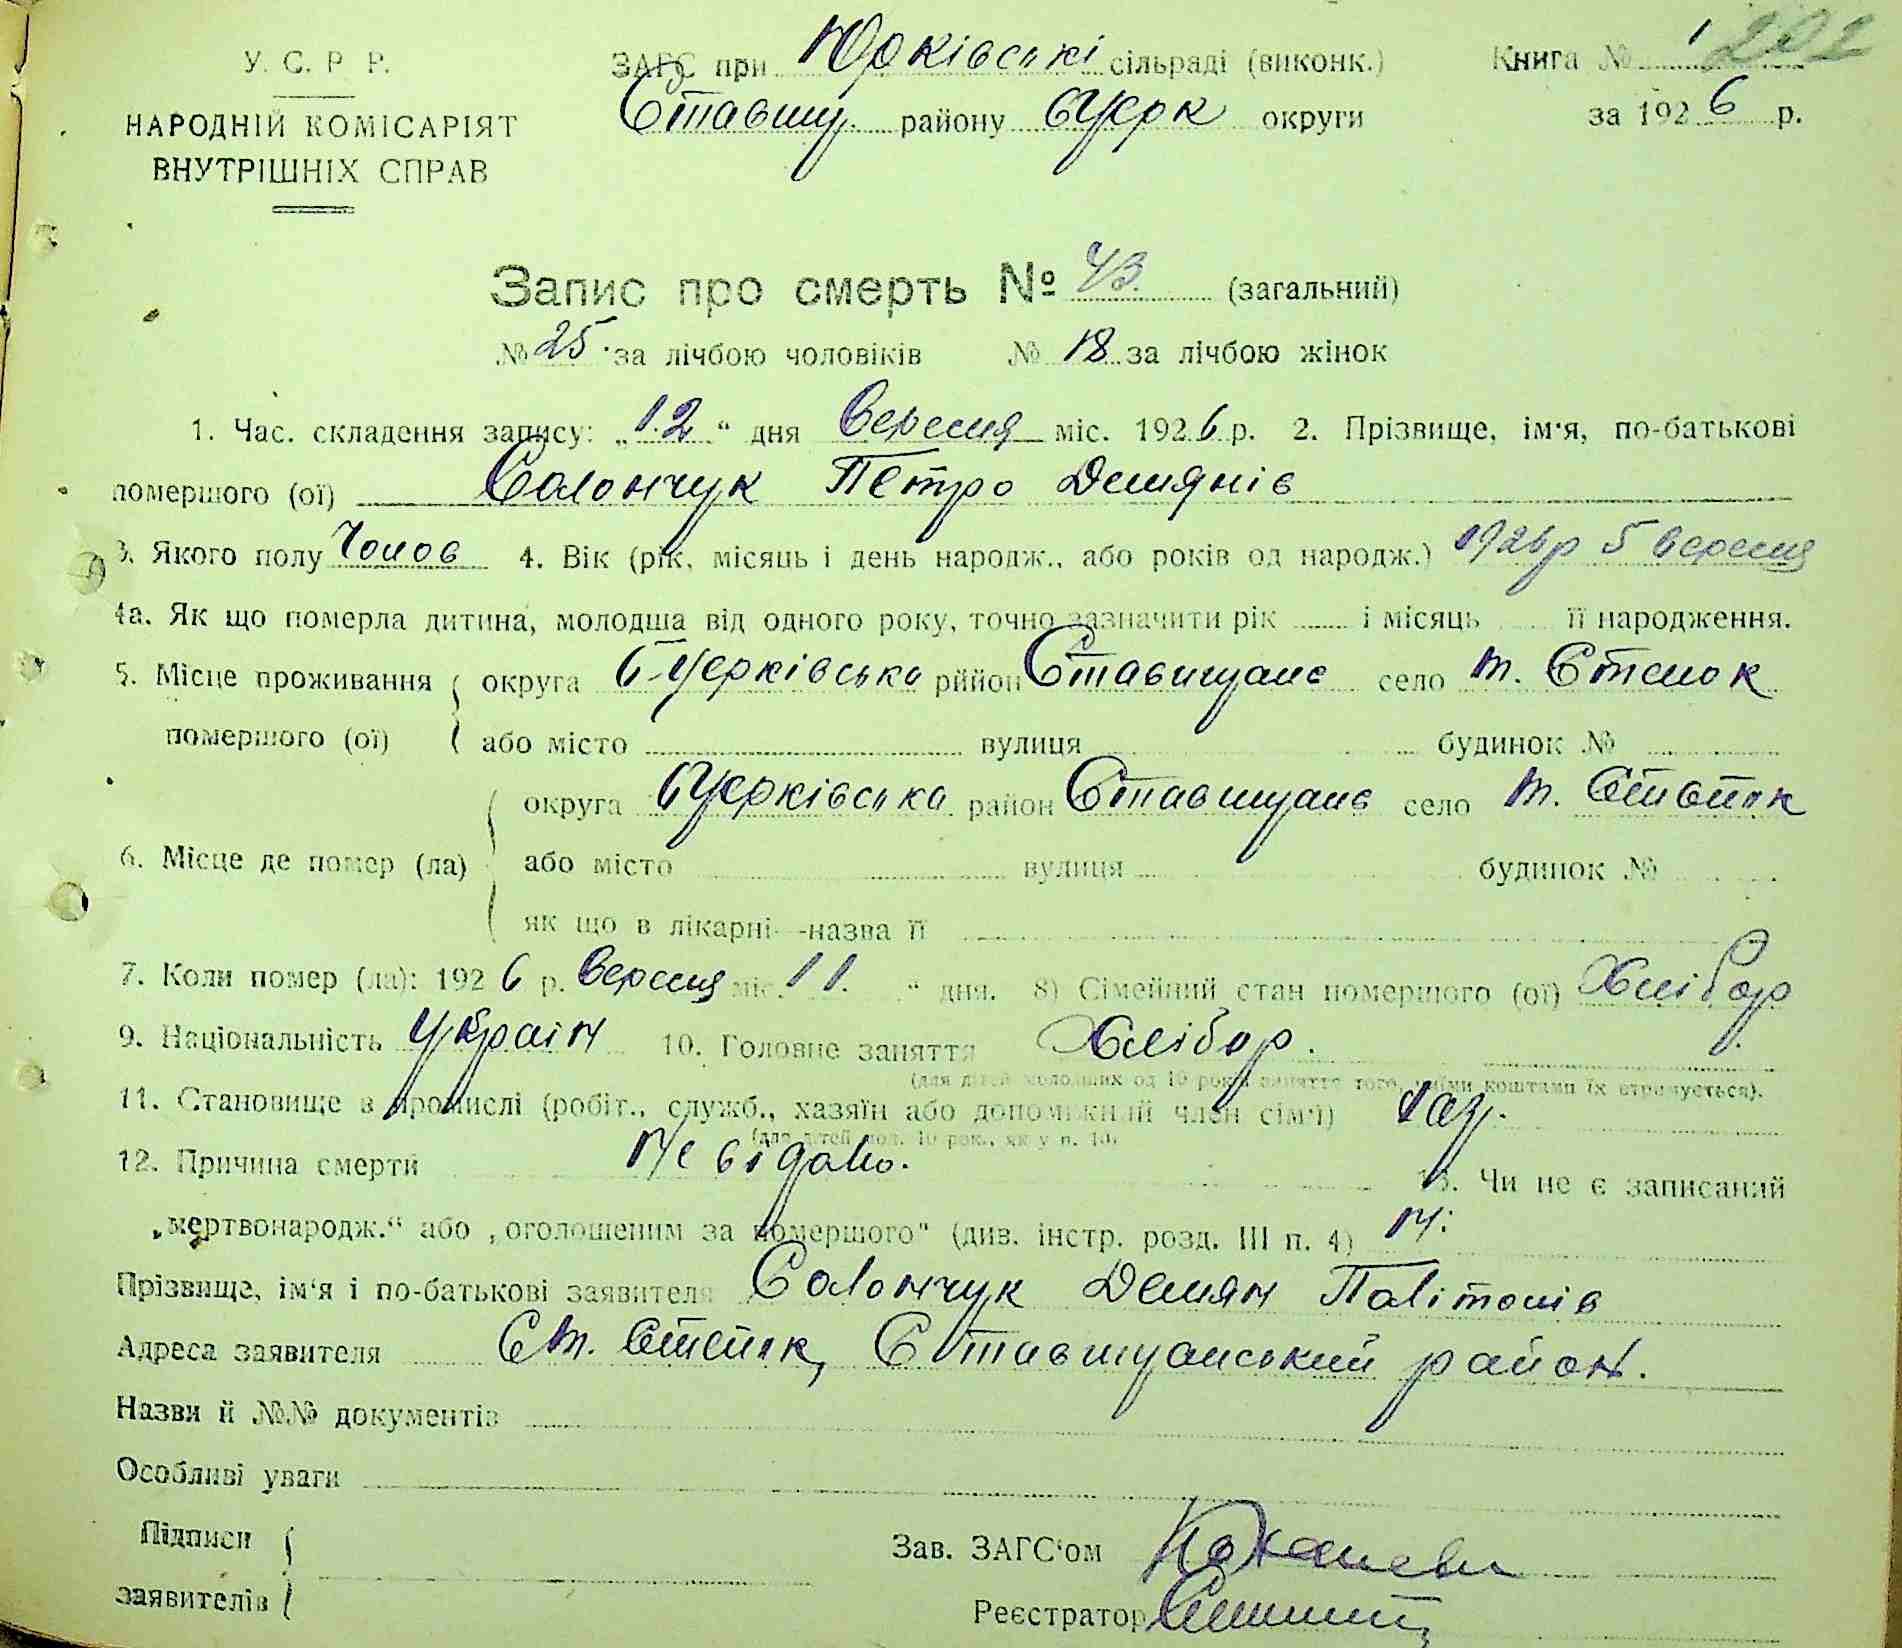 У. С. Р. Р.
НАРОДНІЙ КОМІСАРІЯТ
ВНУТРІШНІХ СПРАВ
ЗАГС при Юрківські сільраді (виконк.)
Ставищ. району БЦерк округи
Книга № 1 202
за 1926 р.
Запис про смерть № 43. (загальний)
№ 25 за лічбою чоловіків № 18 за лічбою жінок
1. Час. складення запису: „12“ дня Вересня міс. 1926 р. 2. Прізвище, ім‘я, по-батькові
помершого (ої) Солончук Петро Демянів
3. Якого полу Чолов 4. Вік (рік, місяць і день народж., або років од народж.) 1926 р 5 вересня
4а. Як що померла дитина, молодша від одного року, точно зазначити рік і місяць її народження.
5. Місце проживання округа Б-Церківська ррйон Ставищанс село
помершого (ої) або місто вулиця будинок №
округа БЦерківська район Ставищанс село
6. Місце де помер (ла) або місто вулиця будинок №
як що в лікарні--назва її
7. Коли помер (ла): 1926 р. Вересня міс. 11. “ дня. 8) Сімейний стан помершого (ої) Хлібор
9. Національність Україн 10. Головне заняття Хлібор.
(для дітей молодших од 10 років заняття того, чиїми коштами їх втримується).
11. Становище в промислі (робіт., служб., хазяїн або допоміжний член сім‘ї)
(для дітей мол. 10 рок., як у п. 10)
12. Причина смерти Не відомо.
13. Чи не є записаний
„мертвонародж.“ або „оголошеним за помершого“ (див. інстр. розд. III п. 4) Ні
Прізвище, ім‘я і по-батькові заявителя Солончук Демян
Адреса заявителя Ставищанський район.
Назви й №№ документів
Особливі уваги
Підписи
заявителів
Зав. ЗАГС‘ом
Реєстратор